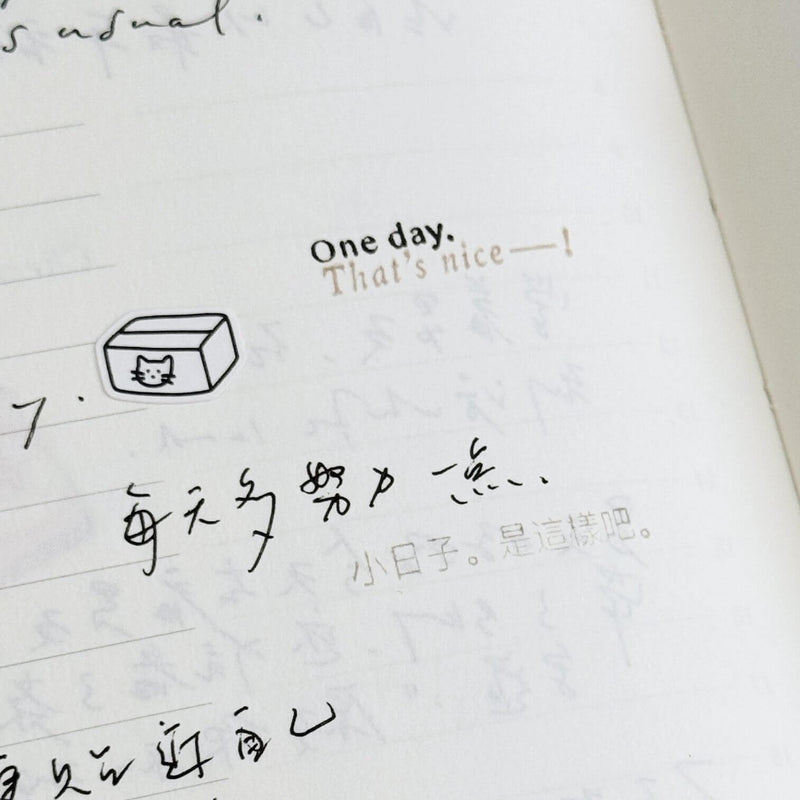 s usual.
One day.
That's nice—!
每天多努力一点、
小日子。是這樣吧。
自己